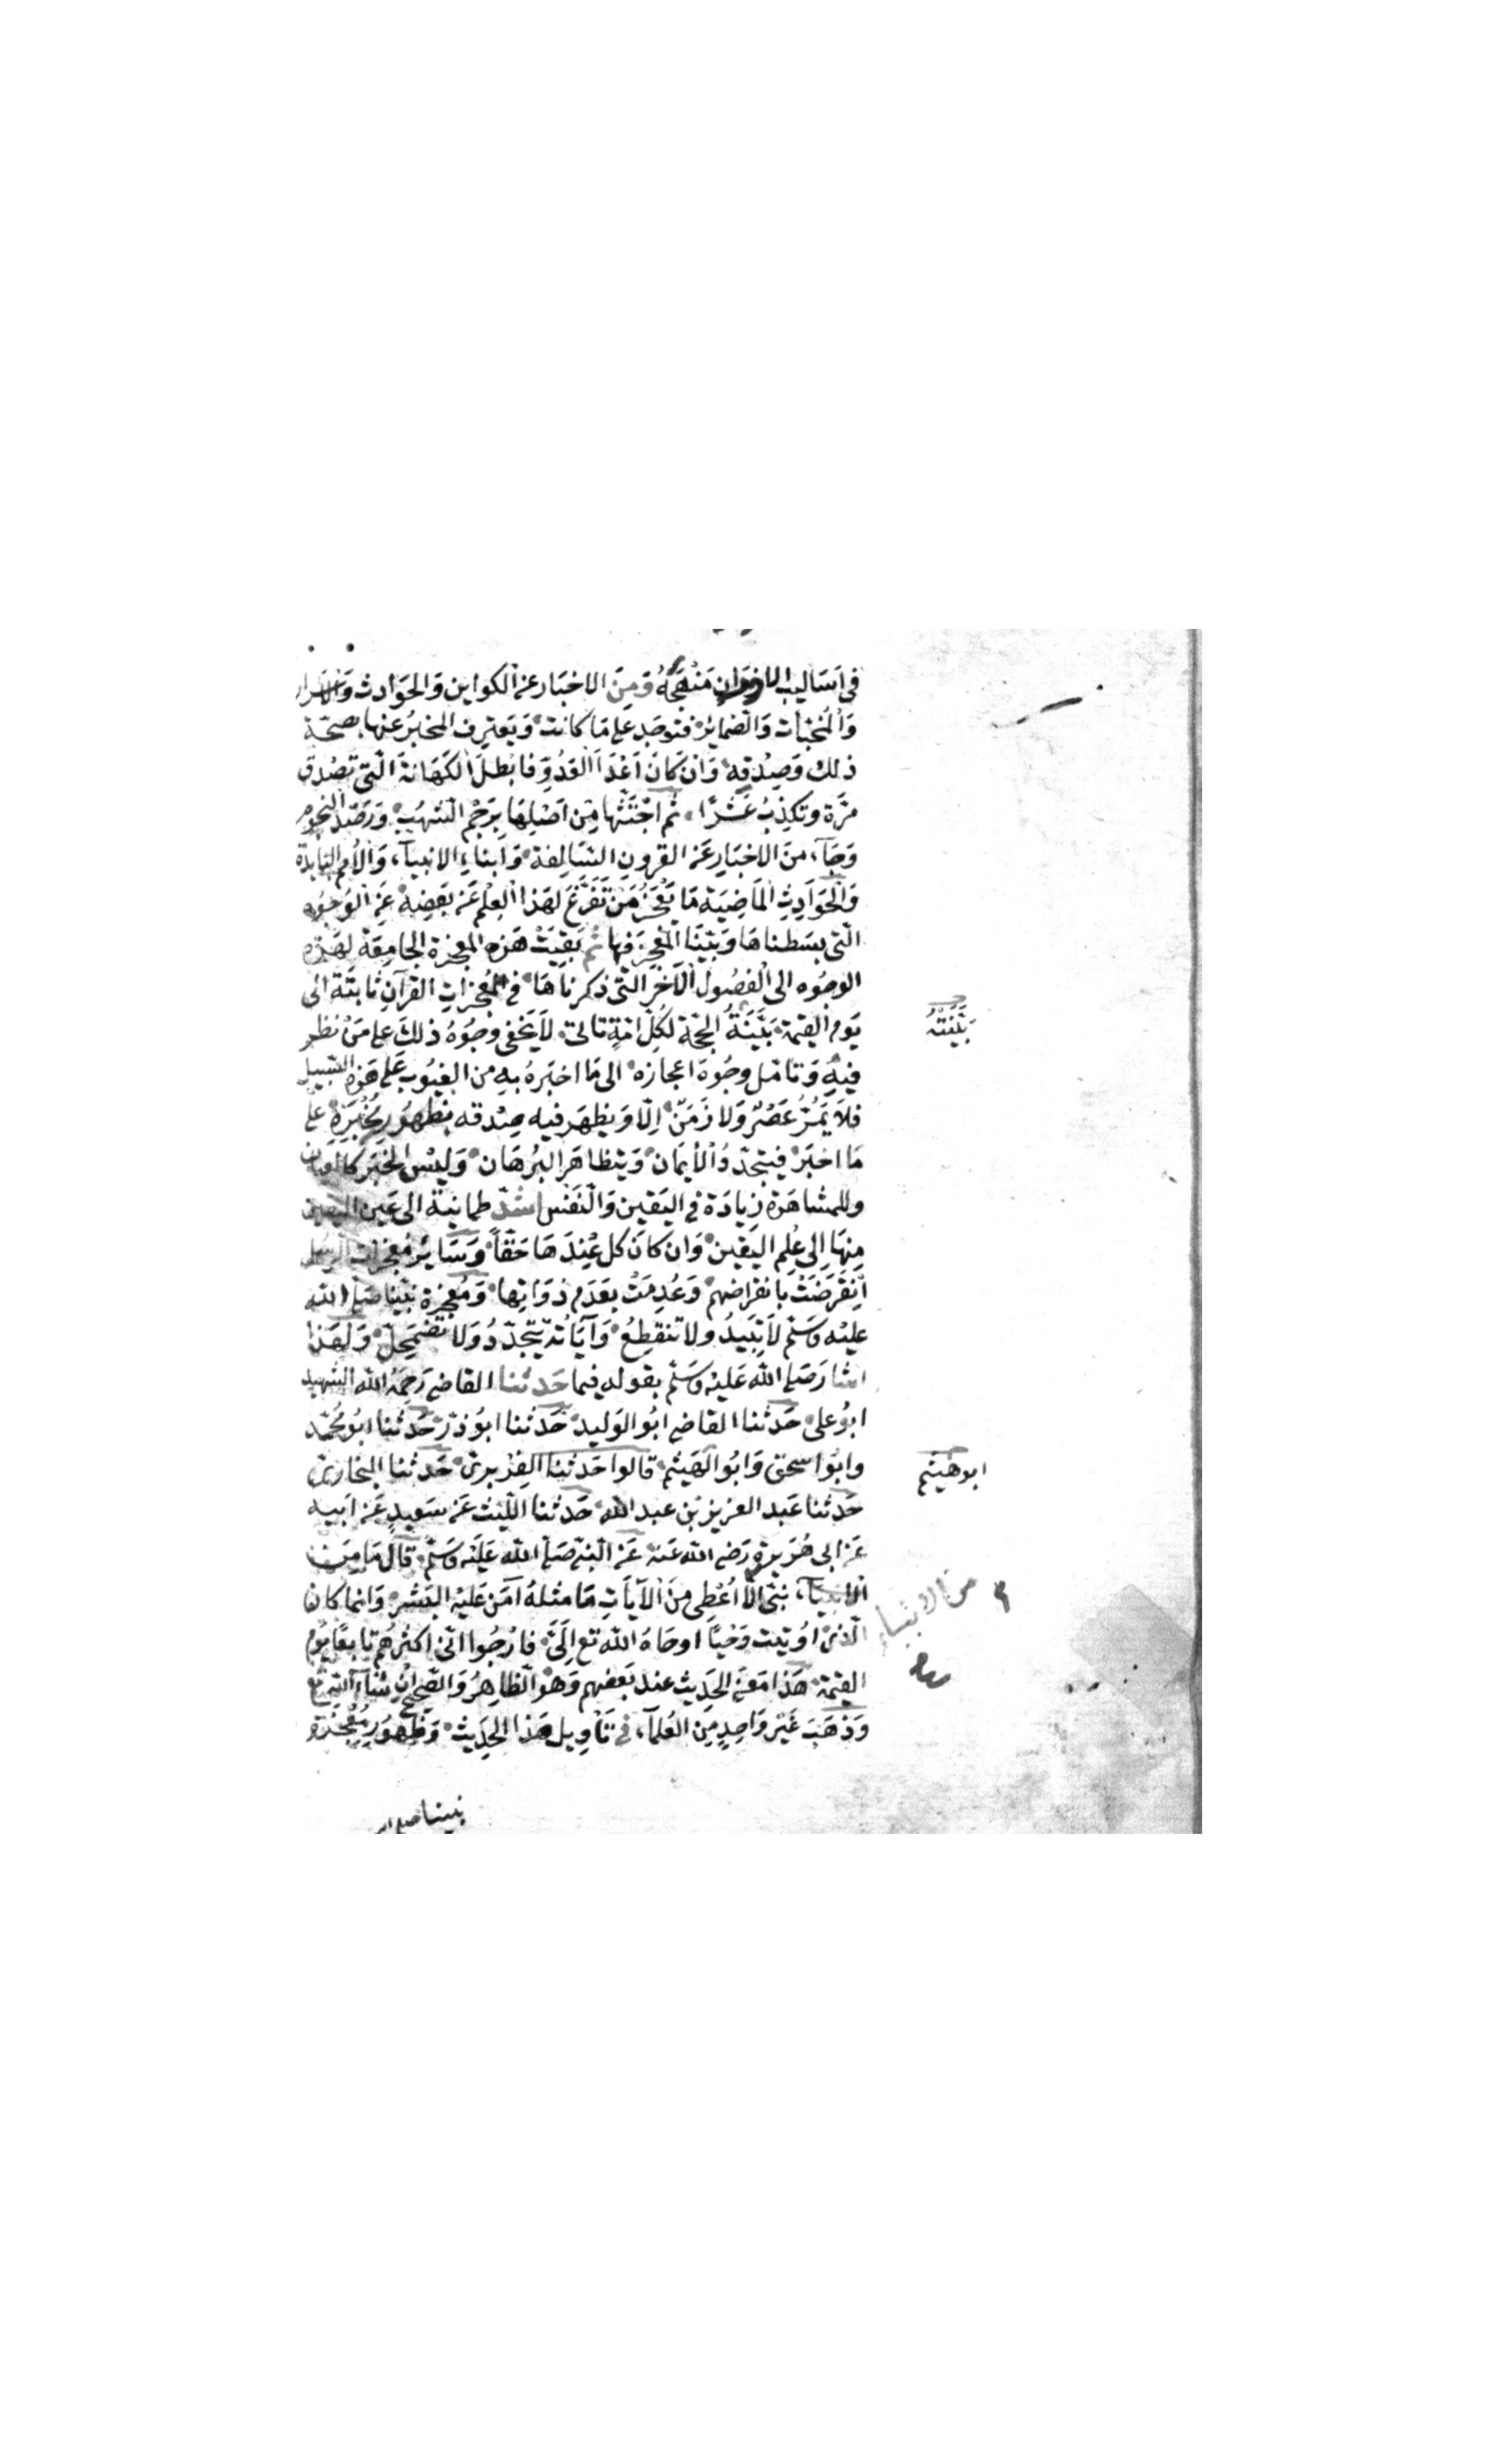 في اساليب الاوزان منهجه ومن الاخبار عن الكواين والحوادث والاسرار
والمخبآت والضمائر فتوجد على ما كانت ويعترف المخبر عنها بصحة
ذلك وصدقه وان كان اعدا العدو فابطل الكهانة التي تصدق
مرة وتكذب عشرا ثم اجتثها من اصلها برجم الشهب ورصد النجوم
وجآء من الاخبار عن القرون السالفة وابناء الانبيآء والامم البايدة
والحوادث الماضية ما يعجز من تفرغ لهذا العلم عن بعضه عن الوجوه
التي بسطناها وبينا المعجز فيها ثم بقيت هذه المعجزة الجامعة لهذه
الوجوه الى الفصول الآخر التي ذكرناها في المعجزات القرآن ثابتة الى
يوم القيمة بينة الحجة لكل امة تاتي لا يخفى وجوه ذلك على من نظر
فيه وتامل وجوه اعجازه الى ما اخبر به من الغيوب على هذه السبيل
فلا يمر عصر ولا زمن الا ويظهر فيه صدقه بظهور مخبره على
ما اخبر فيتجدد الايمان ويتظاهر البرهان وليس الخبر كالعيان
وللمشاهدة زيادة في اليقين والنفس اشد طمانينة الى عين اليقين
منها الى علم اليقين وان كان كل عندها حقا وسائر معجزات الرسل
انقرضت بانقراضهم وعدمت بعدم ذواتها ومعجزة نبينا صلى الله
عليه وسلم لا تبيد ولا تنقطع وآياته تتجدد ولا تضمحل ولهذا
اشار صلى الله عليه وسلم بقوله فيما حدثنا القاضي رحمه الله الشهيد
ابو على حدثنا القاضي ابو الوليد حدثنا ابو ذر حدثنا ابو محمد
وابو اسحق وابو الهيثم قالوا حدثنا الفربري حدثنا البخاري
حدثنا عبد العزيز بن عبد الله حدثنا الليث عن سعيد عن ابيه
عن ابي هريرة رضي الله عنه عن النبي صلى الله عليه وسلم قال ما من
الانبيآء نبي الا اعطى من الآيات ما مثله آمن عليه البشر وانما كان
الذي اوتيت وحيا اوحاه الله تع الي فارجوا اني اكثرهم تابعا يوم
القيمة هذا معنى الحديث عند بعضهم وهو الظاهر والصحيح ان شاء الله تع
وذهب غير واحد من العلمآء في تاويل هذا الحديث وظهور معجزة
نبينا صلى
بينته
ابو هيثم
من الانبياء